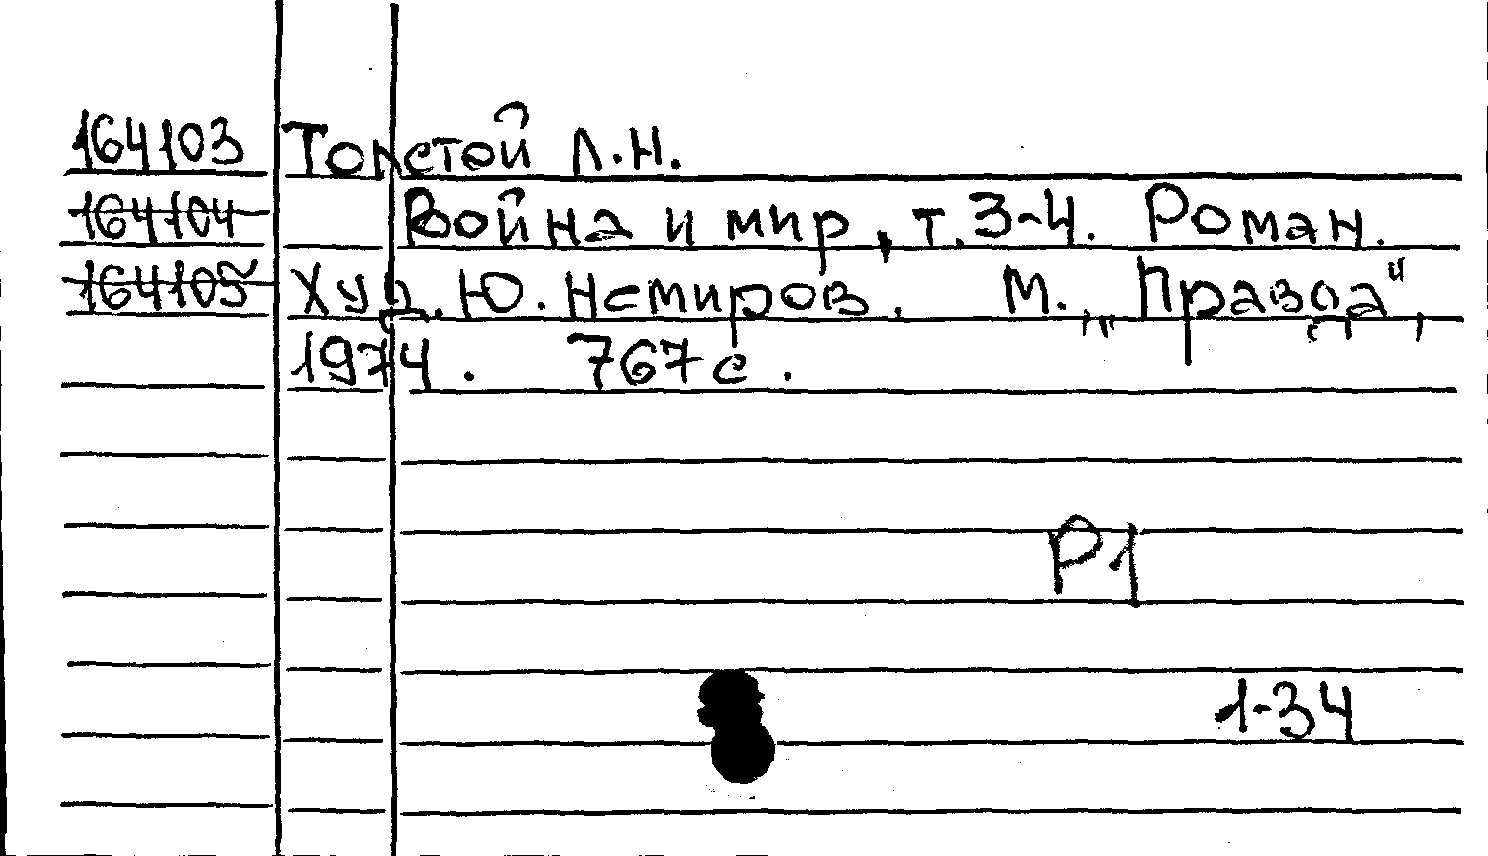 164103 Толстой Л.Н.
164104 Война и мир, т. 3-4. Роман.
164105 Худ. Ю. Немиров. М., „Правда",
1974. 767 с.
Р1
1-34